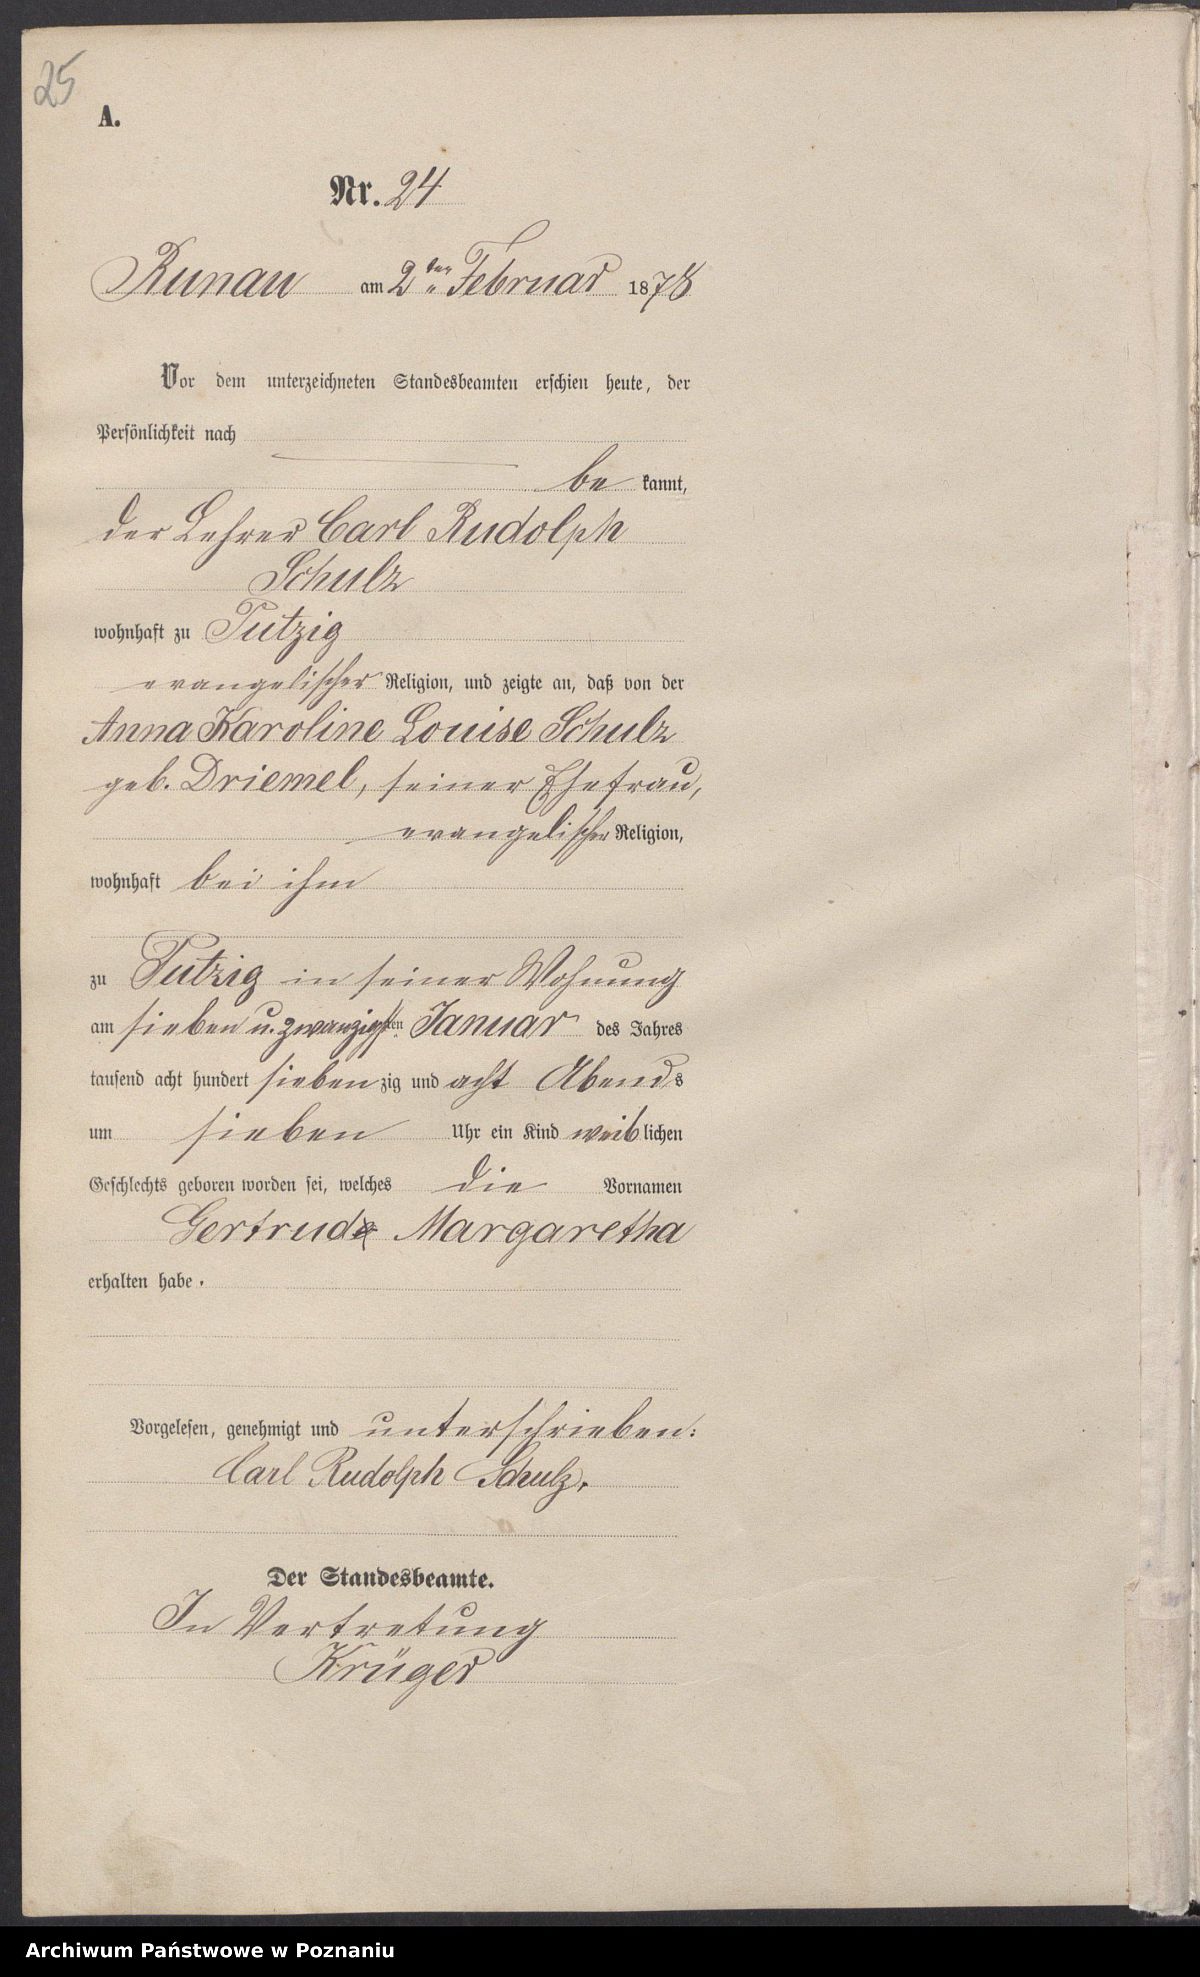 25
A.
Nr. 24
Runau am 2ten Februar 1878
Vor dem unterzeichneten Standesbeamten erschien heute, der
Persönlichkeit nach
be kannt,
der Lehrer Carl Rudolph
Schulz
wohnhaft zu Putzig
evangelischer Religion, und zeigte an, daß von der
Anna Karoline Louise Schulz
geb. Driemel, seiner Ehefrau,
evangelischer Religion,
wohnhaft bei ihm
zu Putzig in seiner Wohnung
am sieben u. zwanzigsten Januar des Jahres
tausend acht hundert siebenzig und acht Abends
um sieben Uhr ein Kind weiblichen
Geschlechts geboren worden sei, welches die Vornamen
Gertrud Margaretha
erhalten habe.
Vorgelesen, genehmigt und unterschrieben:
Carl Rudolph Schulz.
Der Standesbeamte.
In Vertretung
Krüger
Archiwum Państwowe w Poznaniu